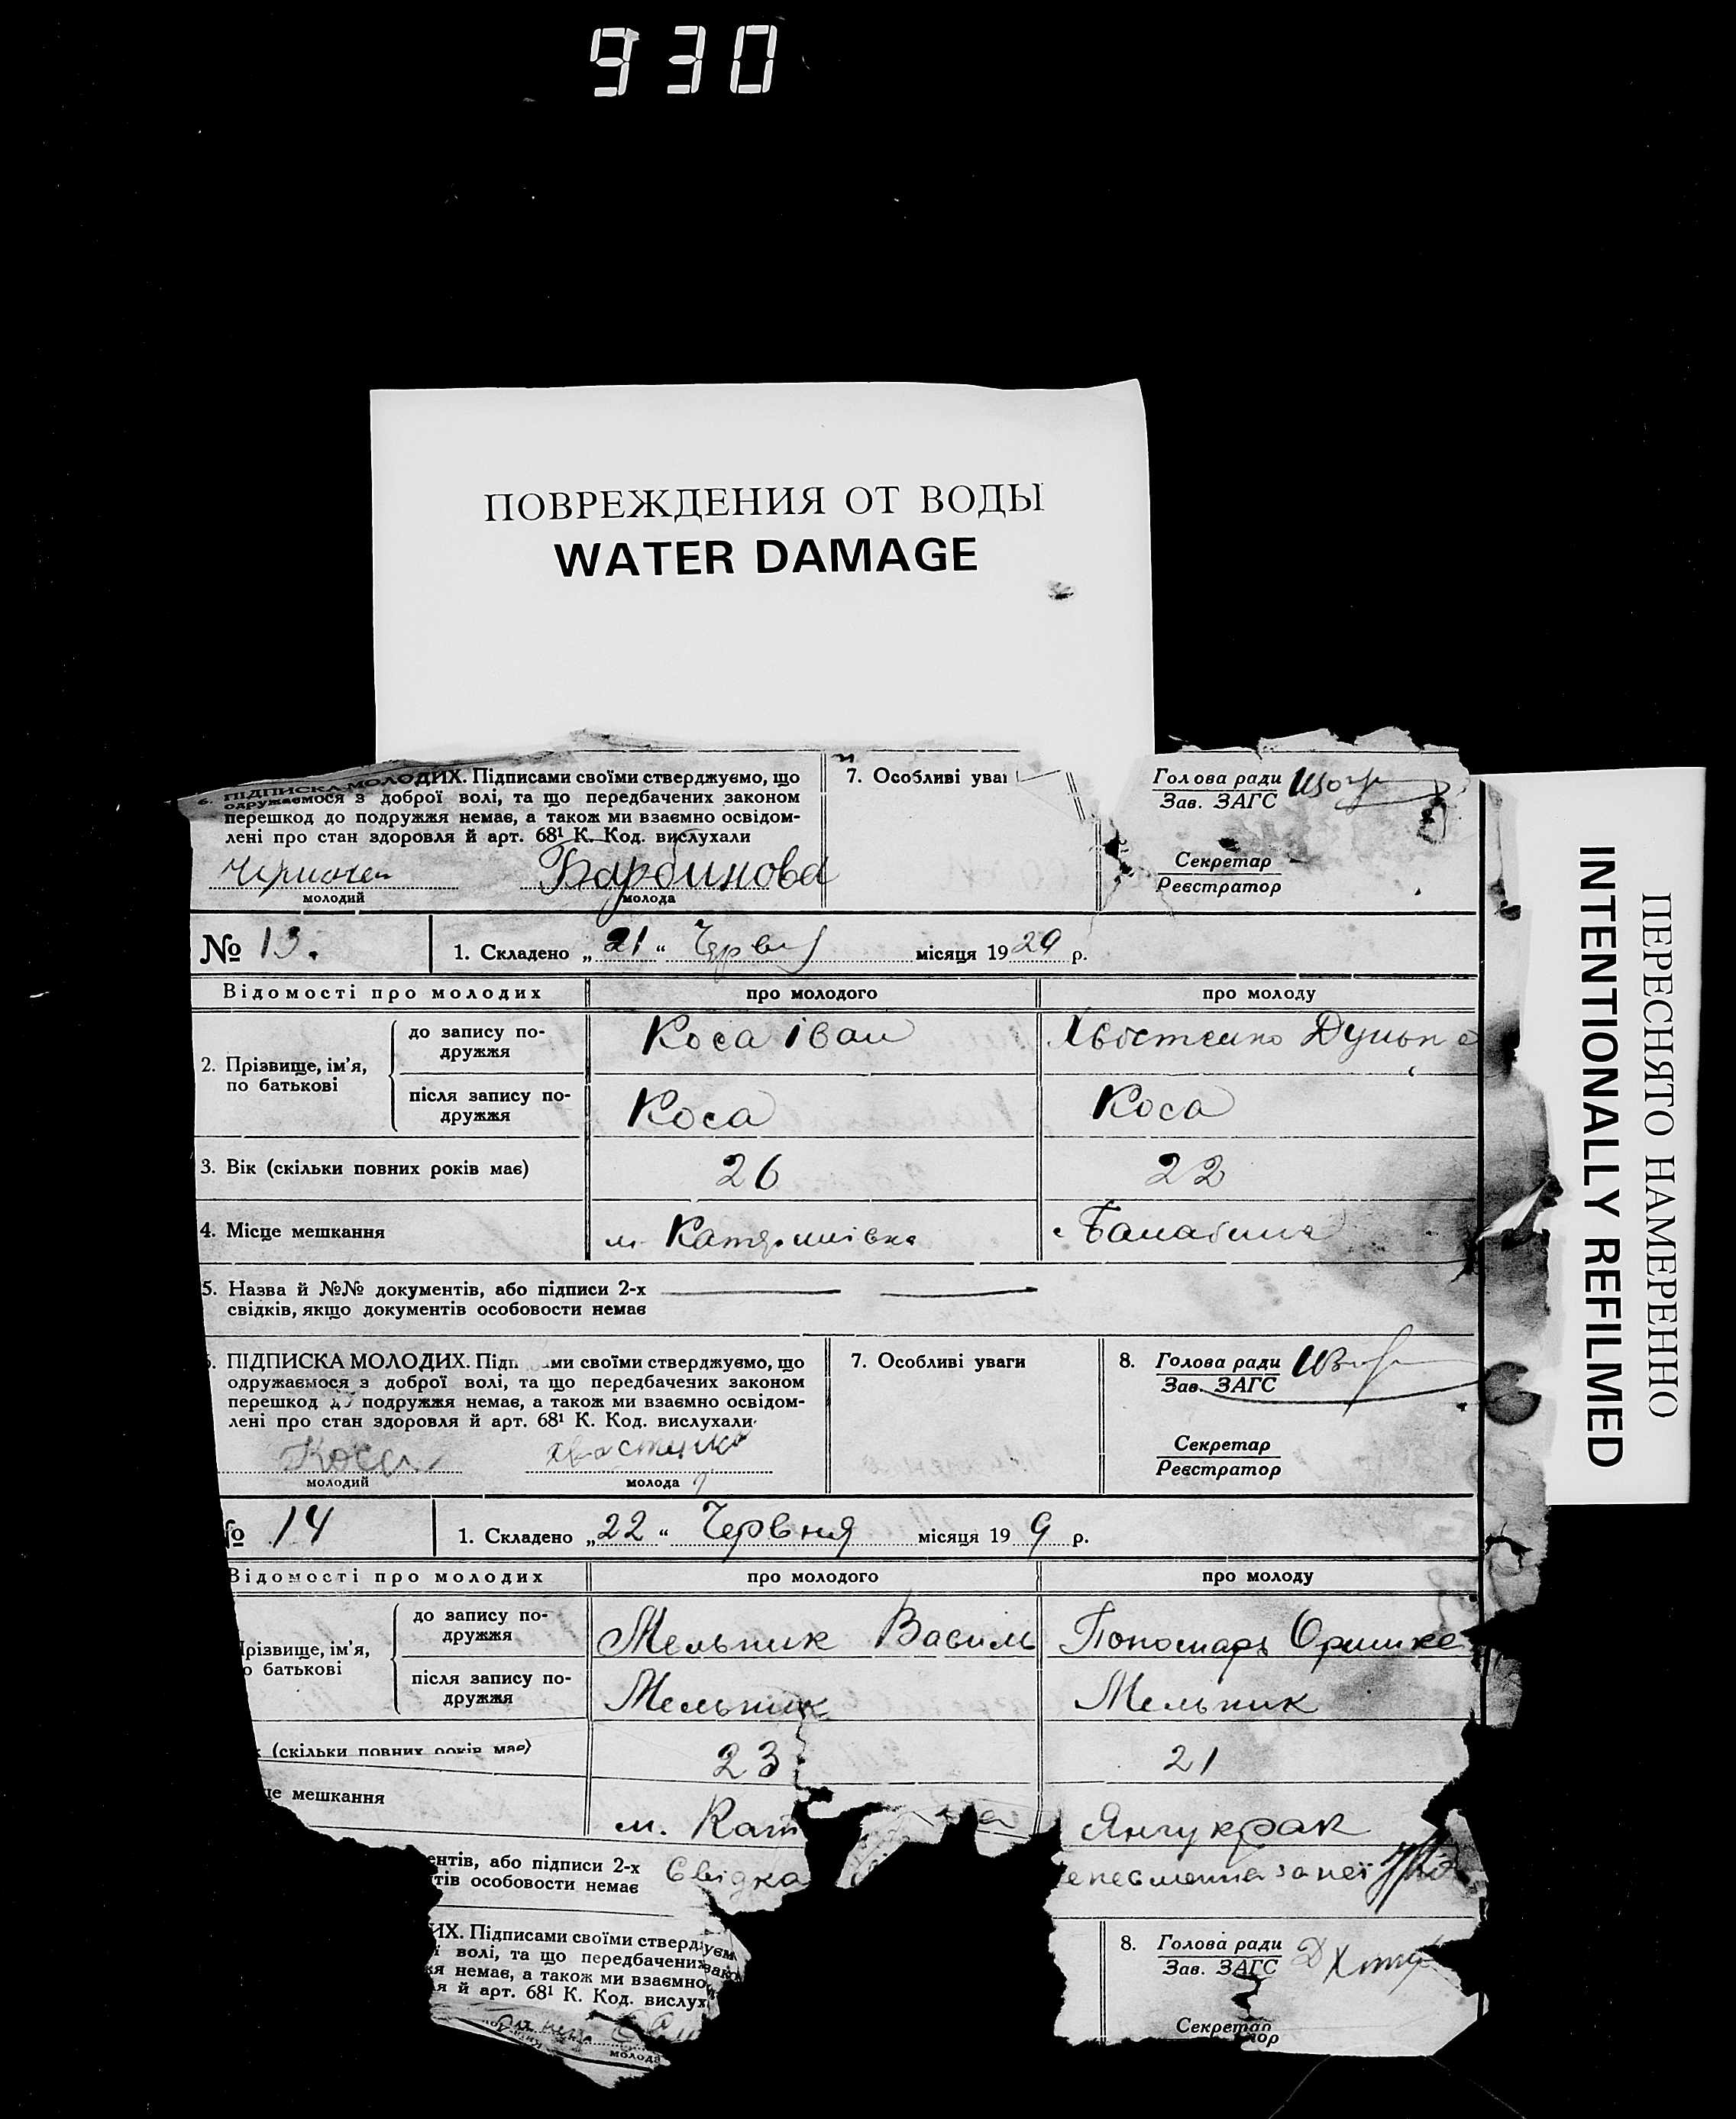 930
ПОВРЕЖДЕНИЯ ОТ ВОДЫ
WATER DAMAGE
ПЕРЕСНЯТО НАМЕРЕННО
INTENTIONALLY REFILMED
6. ПІДПИСКА МОЛОДИХ. Підписами своїми стверджуємо, що
одружаємося з доброї волі, та що передбачених законом
перешкод до подружжя немає, а також ми взаємно освідом-
лені про стан здоровля й арт. 68¹ К. Код. вислухали
молодий молода
7. Особливі уваг
Голова ради
Зав. ЗАГС
Секретар
Реєстратор
№ 13. 1. Складено „21“ місяця 1929 р.
Відомості про молодих про молодого про молоду
2. Прізвище, ім'я, по батькові
до запису по-дружжя Коса Іван
після запису по-дружжя Коса Коса
3. Вік (скільки повних років має) 26 22
4. Місце мешкання м. Катеринівка
5. Назва й №№ документів, або підписи 2-х
свідків, якщо документів особовости немає
6. ПІДПИСКА МОЛОДИХ. Підп ми своїми стверджуємо, що
одружаємося з доброї волі, та що передбачених законом
перешкод до подружжя немає, а також ми взаємно освідом-
лені про стан здоровля й арт. 68¹ К. Код. вислухали
Коса
молодий молода
7. Особливі уваги
8. Голова ради
Зав. ЗАГС
Секретар
Реєстратор
№ 14 1. Складено „22“ Червня місяця 19 9 р.
Відомості про молодих про молодого про молоду
різвище, ім'я, о батькові
до запису по-дружжя Мельник Василь Пономарь Оришка
після запису по-дружжя Мельник Мельник
(скільки повних років має) 23 21
це мешкання м. Кат Янчукрак
ентів, або підписи 2-х Свідка
тів особовости немає
ИХ. Підписами своїми стверджуєм
ї волі, та що передбачених зако
жя немає, а також ми взаємно
я й арт. 68¹ К. Код. вислух
молода
8. Голова ради
Зав. ЗАГС
Секретар